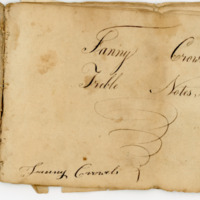 Fanny Crow
Treble Notes
Fanny Crowels